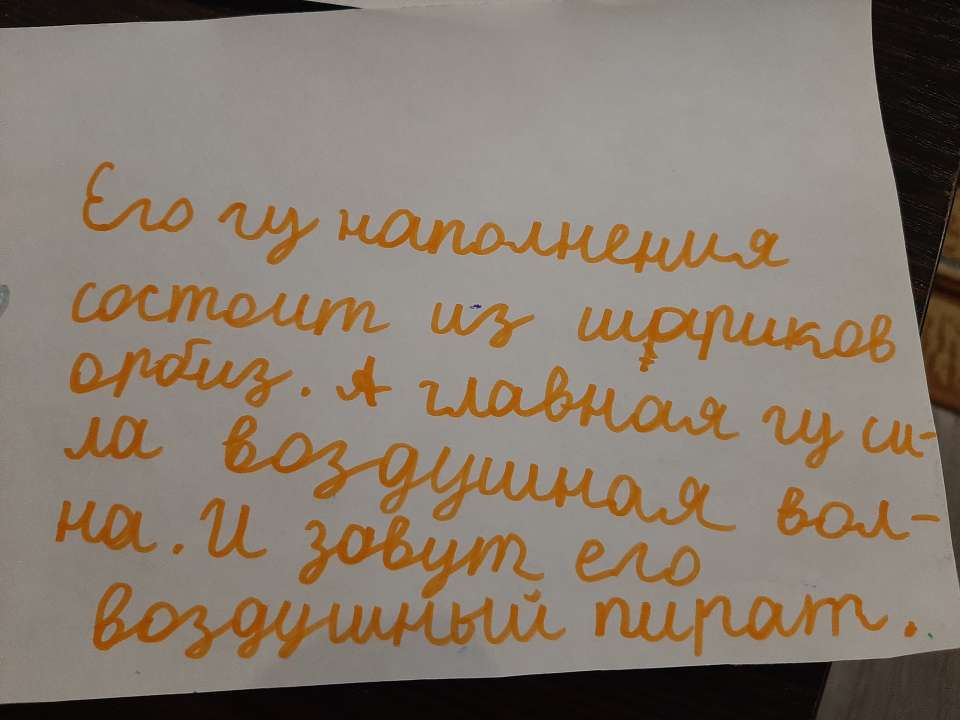 Его гу наполнения
состоит из шариков
орбиз. А главная гу си-
ла воздушная вол-
на. И зовут его
воздушный пират.